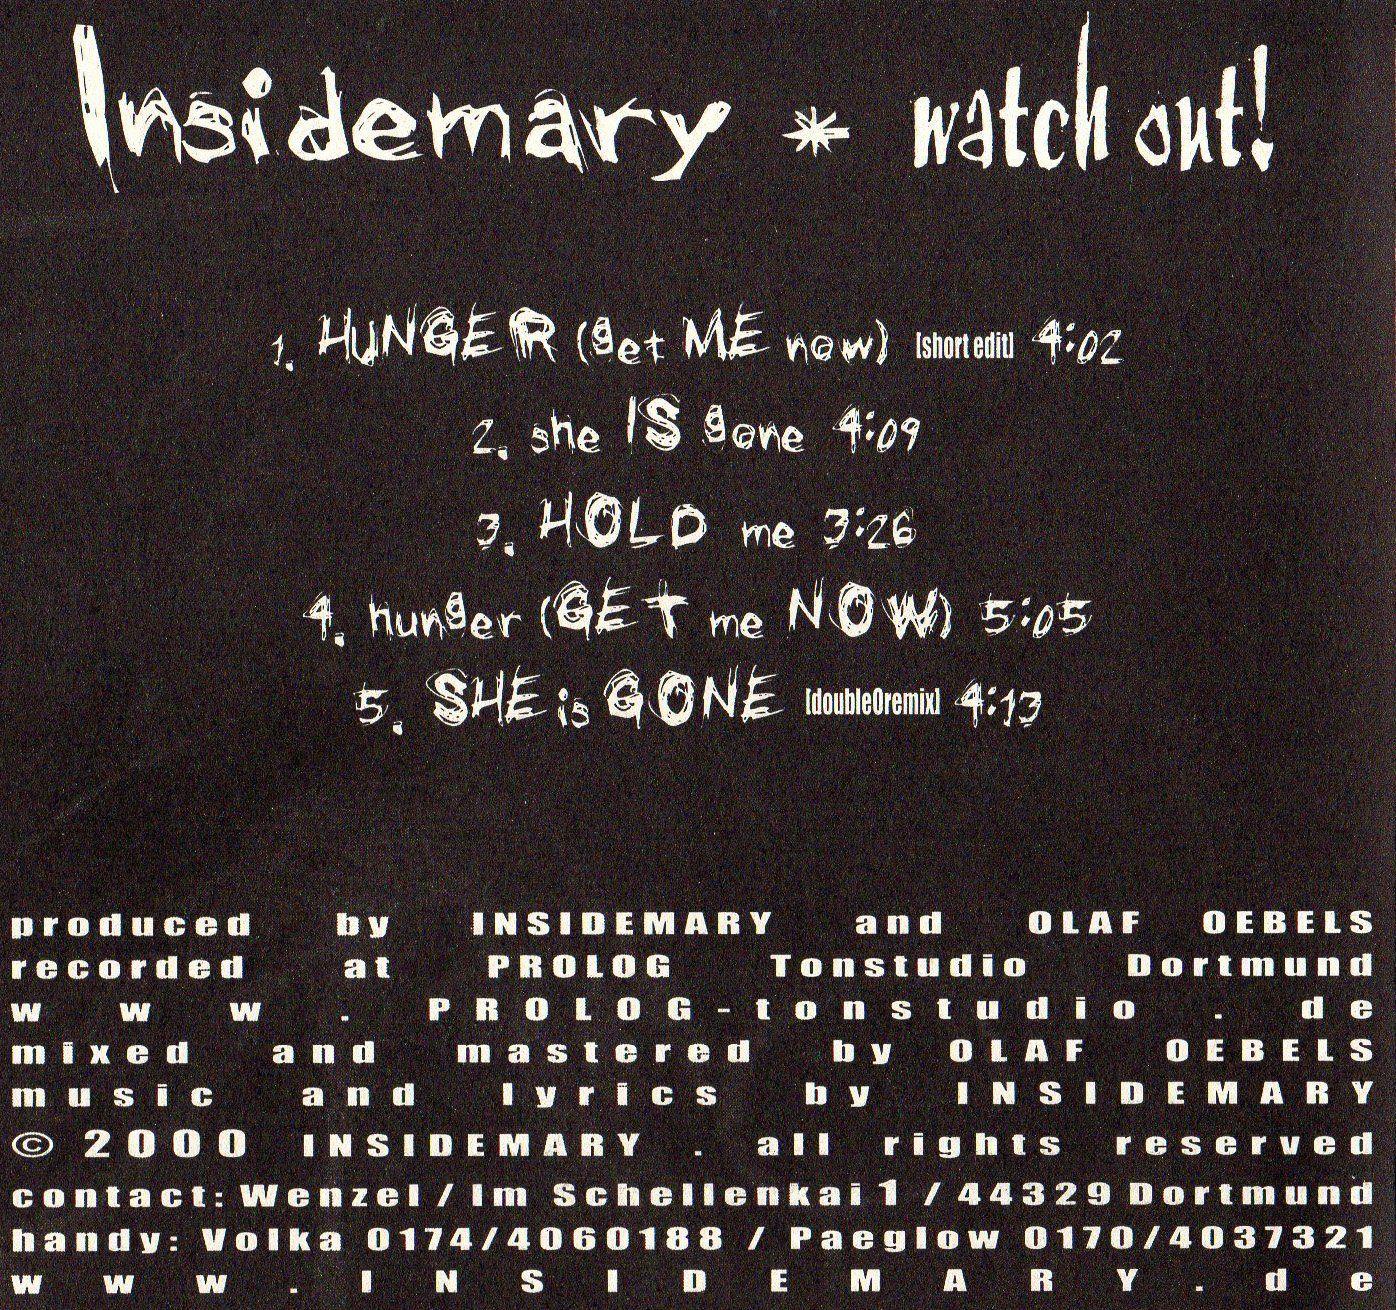 Insidemary * watch out!
1. HuNGER (get ME now) [short edit] 4:02
2. she IS gone 4:09
3. HOLD me 3:26
4. hunger (GET me NOW) 5:05
5. SHE is GONE [double0remix] 4:13
produced by INSIDEMARY and OLAF OEBELS
recorded at PROLOG Tonstudio Dortmund
www.PROLOG-tonstudio.de
mixed and mastered by OLAF OEBELS
music and lyrics by INSIDEMARY
© 2000 INSIDEMARY . all rights reserved
contact: Wenzel / Im Schellenkai 1 / 44329 Dortmund
handy: Volka 0174/4060188 / Paeglow 0170/4037321
www.INSIDEMARY.de